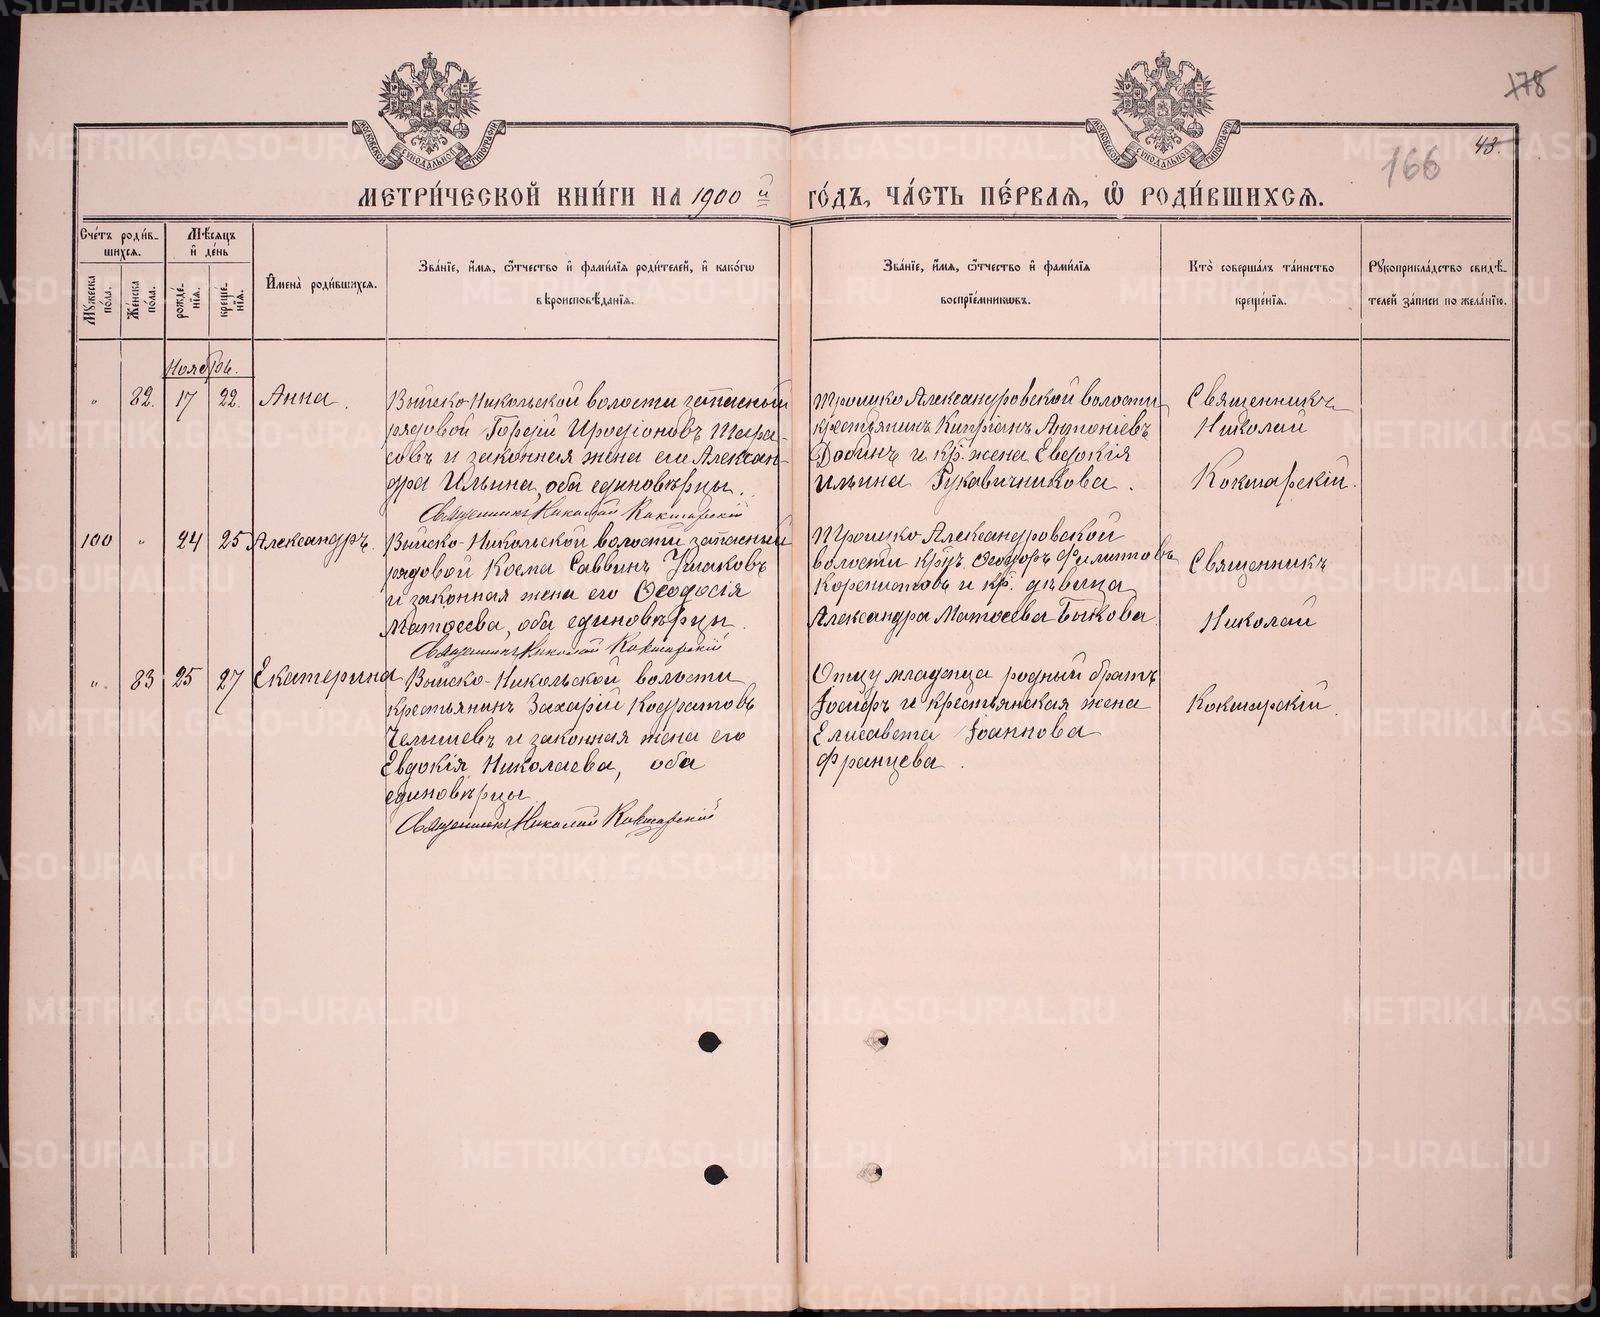 178
43.
166
МОСКОВСКОЙ СѴНОДАЛЬНОЙ ТИПОГРАФІИ
МОСКОВСКОЙ СѴНОДАЛЬНОЙ ТИПОГРАФІИ
МЕТРИ́ЧЕСКОЙ КНИ́ГИ НА 1900 й ГО́ДЪ, ЧА́СТЬ ПЕ́РВАЯ, Ѿ РОДИ́ВШИХСЯ.
Сче́тъ роди́в-
шихся.
Мꙋжеска по́ла.
Же́нска по́ла.
Мѣ́сяцъ
и҆ де́нь
рожде́-
нїѧ.
креще́-
нїѧ.
И҆мена̀ роди́вшихся.
Зва́нїе, и҆́мя, ѻ҆́тчество и҆ фами́лїя роди́телей, и҆ како́гѡ
вѣроисповѣ́данїя.
Зва́нїе, и҆́мя, ѻ҆́тчество и҆ фами́лїя
воспрїе́мникѡвъ.
Кто̀ соверша́лъ та́инство
креще́нїя.
Рꙋкоприкла́дство свидѣ́-
телей за́писи по жела́нїю.
Ноябрь.
" 82. 17 22. Анна.
Выйско-Никольской волости запасный
рядовой Гордій Иродіоновъ Тара-
совъ и законная жена его Алексан-
дра Ильина, оба единовѣрцы.
Священникъ Николай Кокшарскій
Троицко Александровской волости
крестьянинъ Кипріанъ Антоніевъ
и кр. жена Евдокія
Ильина Рукавичникова.
Священникъ
Николай
Кокшарскій.
100 " 24 25 Александръ.
Выйско-Никольской волости запасный
рядовой Косма Саввинъ Ушаковъ
и законная жена его Ѳеодосія
Матѳеева, оба единовѣрцы.
Священникъ Николай Кокшарскій
Троицко Александровской
волости Филипповъ
и кр. дѣвица
Александра Матѳеева Быкова.
Священникъ
Николай
Кокшарскій.
" 83 25 27 Екатерина
Выйско-Никольской волости
крестьянинъ Захарій Кодратовъ
Челышевъ и законная жена его
Евдокія Николаева, оба
единовѣрцы.
Священникъ Николай Кокшарскій
Отцу младенца родный братъ
Іосифъ и крестьянская жена
Елисавета Іоаннова
Францева.